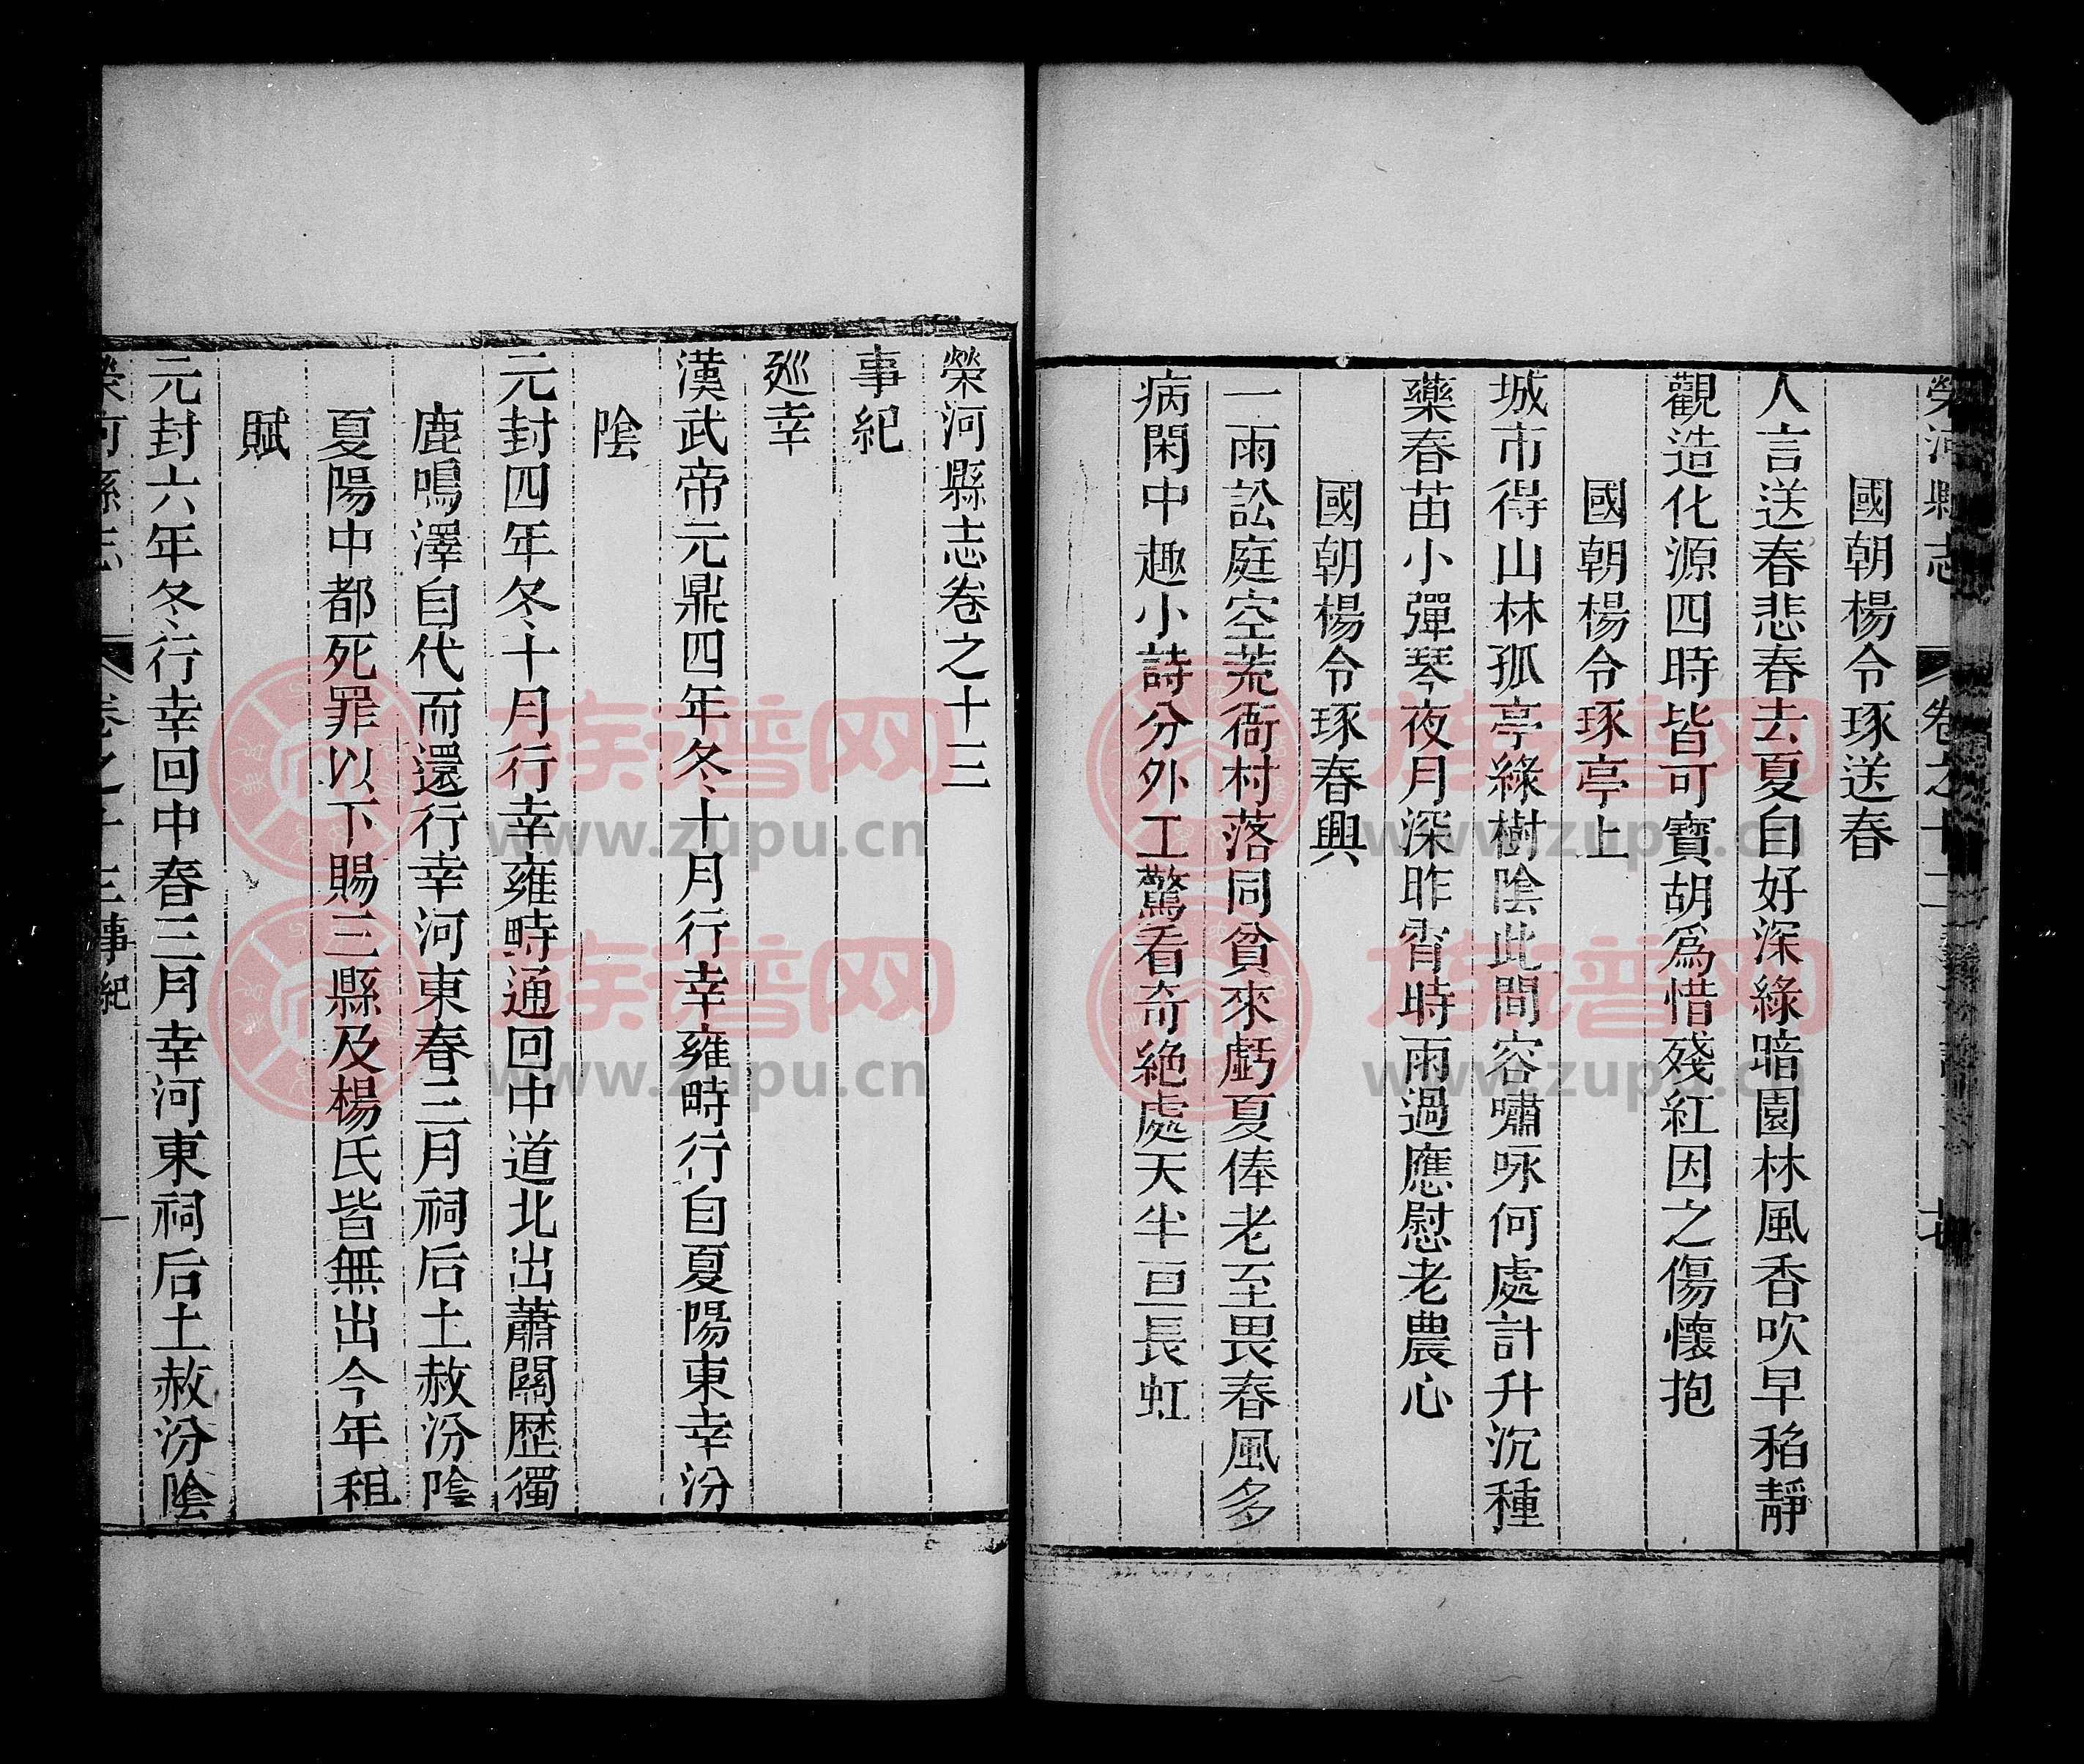 榮河縣志 卷之十二
國朝楊令琢送春
人言送春悲春去夏自好深綠暗園林風香吹早稻靜
觀造化源四時皆可寶胡爲惜殘紅因之傷懷抱
國朝楊令琢亭上
城市得山林孤亭綠樹陰此間容嘯咏何處計升沉種
藥春苗小彈琴夜月深昨宵時雨過應慰老農心
國朝楊令琢春興
一雨訟庭空荒衙村落同貧來虧夏俸老至畏春風多
病閑中趣小詩分外工驚看奇絶處天半亘長虹
榮河縣志卷之十三
事紀
廵幸
漢武帝元鼎四年冬十月行幸雍畤行自夏陽東幸汾
陰
元封四年冬十月行幸雍畤通回中道北出蕭關歷獨
鹿鳴澤自代而還行幸河東春三月祠后土赦汾陰
夏陽中都死罪以下賜三縣及楊氏皆無出今年租
賦
元封六年冬行幸回中春三月幸河東祠后土赦汾陰
榮河縣志 卷之十三事紀 一
族谱网
www.zupu.cn
族谱网
www.zupu.cn
族谱网
www.zupu.cn
族谱网
www.zupu.cn